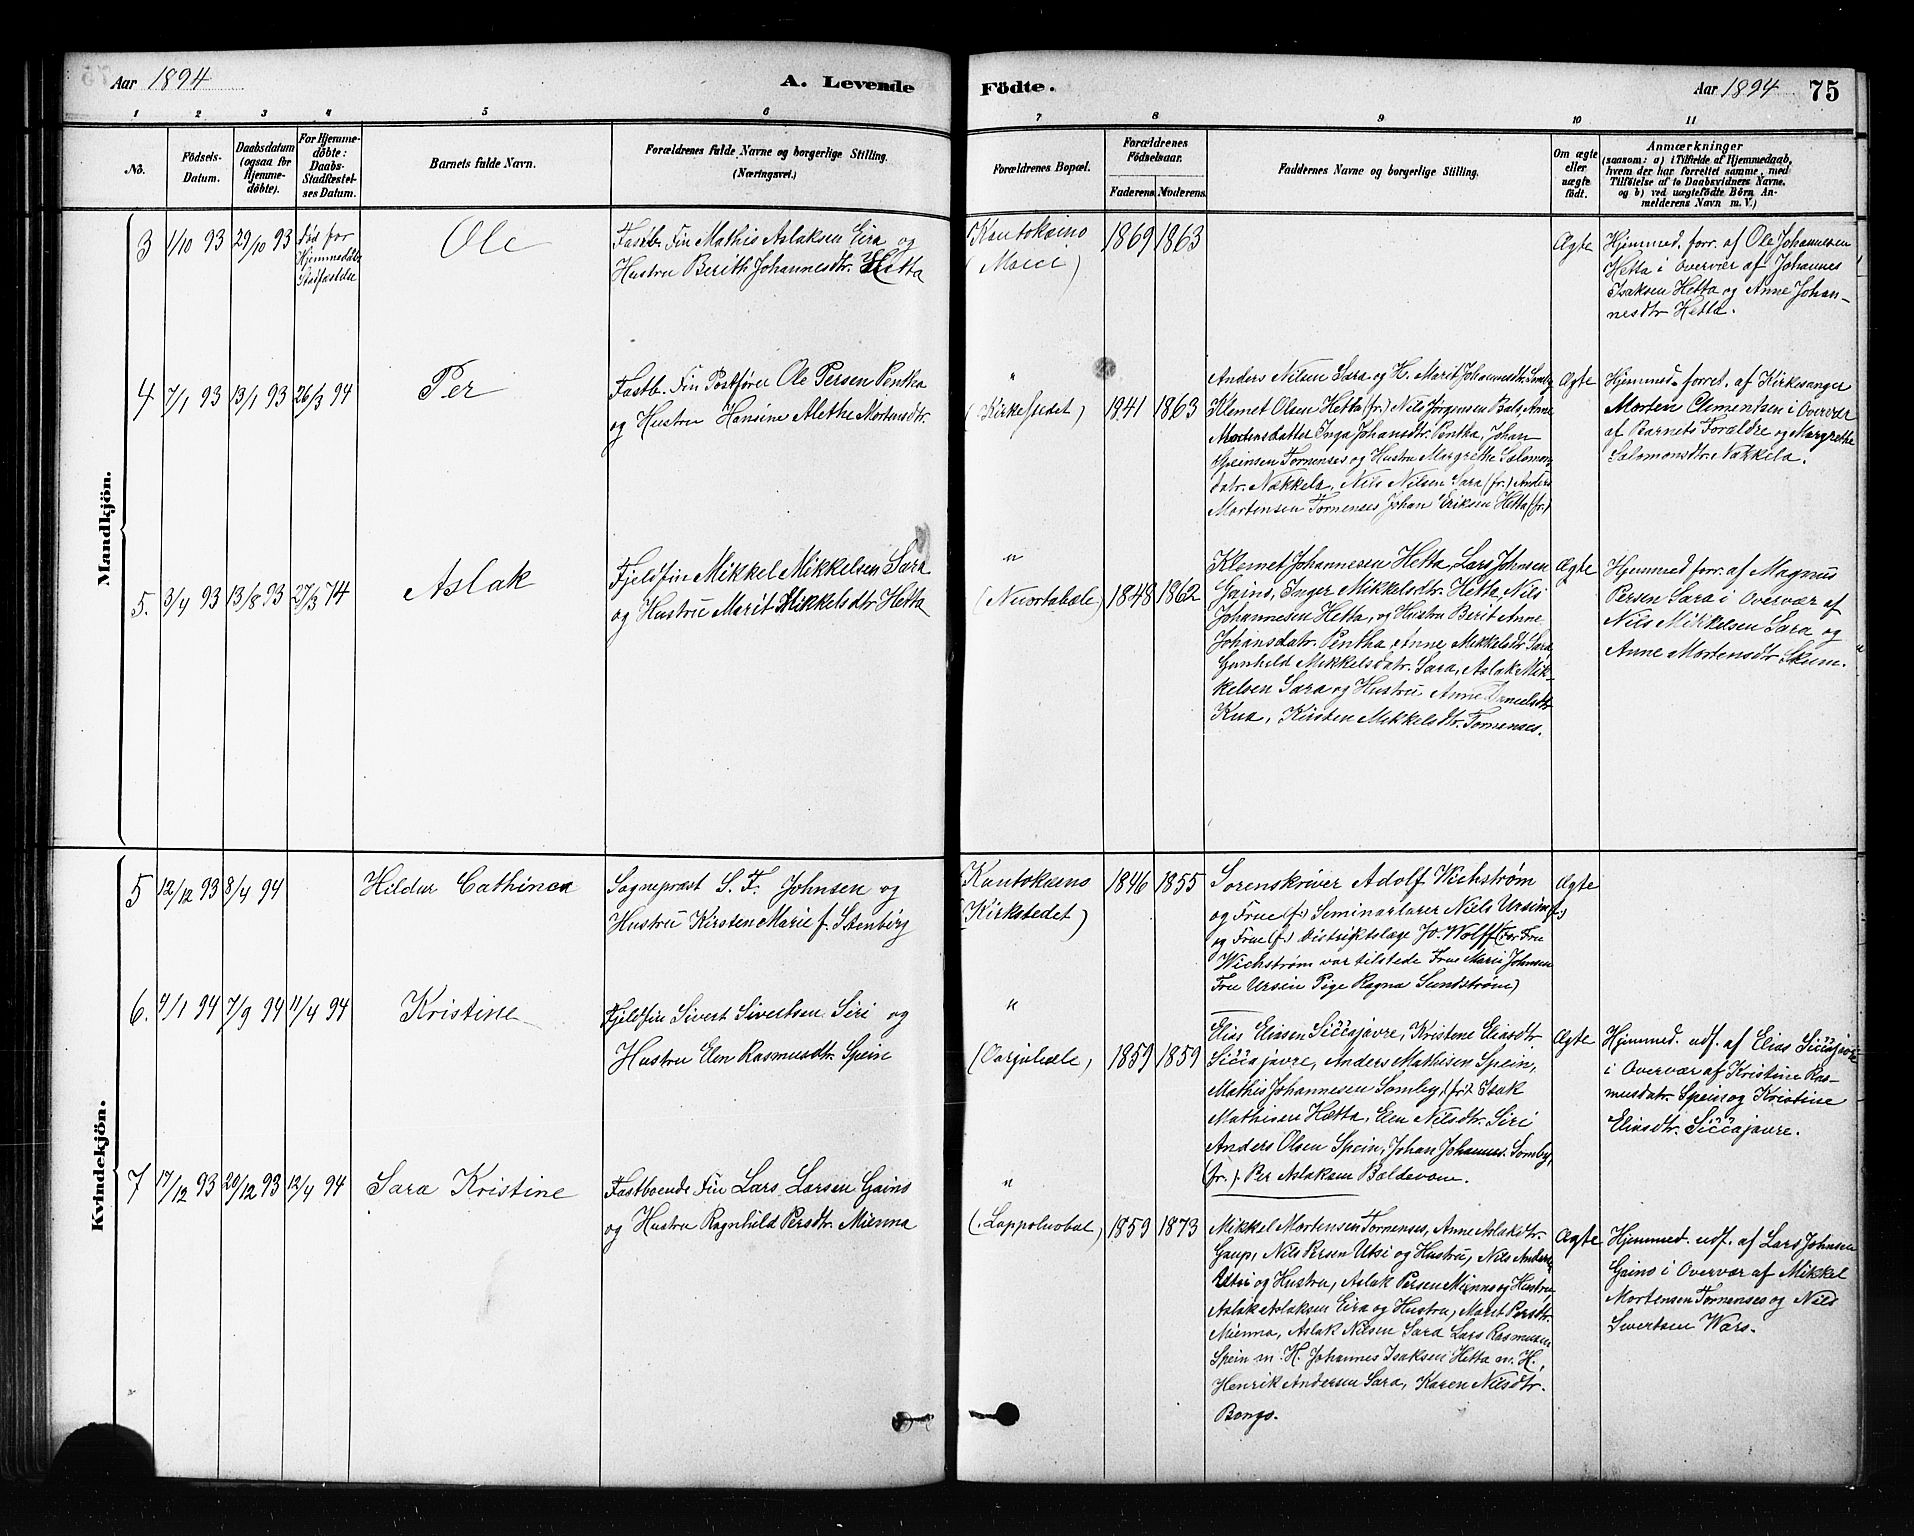 Aar 1894
A. Levende
Födte.
Aar 1894
75
1 2 3 4 5 6 7 8 9 10 11
No.
Födsels-
Datum.
Daabsdatum
(ogsaa for
Hjemme-
döbte).
For Hjemme-
döbte:
Daabs-
Stadfæstel-
ses Datum.
Barnets fulde Navn.
Forældrenes fulde Navne og borgerlige Stilling.
(Næringsvei.)
Forældrenes Bopæl.
Forældrenes
Födselsaar.
Faderens. Moderens.
Faddernes Navne og borgerlige Stilling.
Om ægte
eller
uægte
födt.
Anmærkninger
(saasom: a) i Tilfælde af Hjemmedaab,
hvem der har forrettet samme, med
Tilföielse af to Daabsvidners Navne,
og b) ved uægtefödte Börn An-
melderens Navn m. V.)
Mandkjön.
3 1/10 93 29/10 93
død før
Hjemmedåbs
Stadfæstelse
Ole
Fastb. Fin Mathis Aslaksen Eira og
Hustru Berith Johannesdtr. Hetta
Kautokeino
1869 1863
Ægte
Hjemmed. forr. af Ole Johannesen
Hetta i Overvær af Johannes
Isaksen Hetta og Anne Johan-
nesdtr Hetta.
4 7/1 93 13/1 93 26/3 94
Per
Fastb. Fin Postfører Ole Persen Pentha
og Hustru Hansine Alethe Mortensdtr.
"
(Kirkestedet)
1841 1863
Anders Nilsen Sara og H. Marit Johannesdtr. Somby
Klemet Olsen Hetta (fr.) Nils Jørgensen Bals, Anne
Mortensdatter Inga Johansdtr. Pentha, Johan
Speinsen Tornenses og Hustru Margrethe Salomons
datr. Nækkela, Nils Nilsen Sara (fr.) Anders
Mortensen Tornenses Johan Eriksen Hetta (fr.)
Ægte
Hjemmed. forret. af Kirkesanger
Morten Clementsen i Overvær
af Barnets Forældre og Margrethe
Salomonsdtr. Nækkela.
5. 3/4 93 13/8 93 27/3 94
Aslak
Fjeldfin Mikkel Mikkelsen Sara
og Hustru Marit Mikkelsdtr Hetta
"
(Nuortabæle)
1848 1862
Klemet Johannesen Hetta, Lars Johnsen
Gaino, Inger Mikkelsdtr. Hetta Nils
Johannesen Hetta, og Hustru Berit Anne
Johansdatr. Pentha, Anne Mikkelsdtr Sara
Gunhild Mikkelsdatr. Sara, Aslak Mik-
kelsen Sara og Hustru Anne
Kua, Kirsten Mikkelsdtr. Tornenses.
Ægte
Hjemmed forr. af Magnus
Persen Sara i Overvær af
Nils Mikkelsen Sara og
Anne Mortensdtr Skum.
Kvindekjön.
5 12/12 93 8/4 94
Hildur Cathinca
Sognepræst S. F. Johnsen og
Hustru Kirsten Marie f. Stenberg
Kautokeino
(Kirkstedet)
1846 1855
Sorenskriver Adolf Wichstrøm
og Frue (f.) Seminarlærer Niels Ursin (f.)
og Frue (f.) Distriktslæge Jo. Wolff (For Fru
Wichstrøm var tilstede Frue Marie Johnsen
Fru Ursin Pige Ragna Sundstrøm)
Ægte
6. 4/1 94 7/9 94 11/4 94
Kristine
Fjeldfin Sivert Sivertsen Siri og
Hustru Elen Rasmusdtr. Spein
"
(Oarjubæle)
1859 1859
Elias Eliasen Siččajavre, Kristene Eliasdtr.
Siččajavre, Anders Mathisen Spein,
Mathis Johannesen Somby, (fr). Isak
Mathisen Hetta, Elen Nilsdtr. Siri
Anders Olsen Spein, Johan Johannes. Somby,
(fr.). Per Aslaksen Baldevom.
Ægte
Hjemmed. udf. af Elias Siččajavre
i Overvær af Kristine Ras-
musdatr. Spein og Kristine
Eliasdtr. Siččajavre.
7 17/12 93 29/12 93 12/4 94
Sara Kristine
Fastboende Fin Lars Larsen Gaino
og Hustru Ragnhild Persdtr. Mienna
"
(Lappoluobal)
1859 1873
Mikkel Mortensen Tornenses, Anne Aslakdtr.
Gaup, Nils Persen Utsi og Hustru, Nils Anders
Utsi og Hustru, Aslak Persen Mienna og Hustru,
Aslak Aslaksen Eira og Hustru, Maret Persdtr.
Mienna, Aslak Nilsen Sara Lars Rasmusen
Spein m. H. Johannes Isaksen Hetta m. H.,
Henrik Andersen Sara, Karen Nilsdtr.
Bongo.
Ægte
Hjemmed. udf. af Lars Johnsen
Gaino i Overvær af Mikkel
Mortensen Tornenses og Nils
Sivertsen Wars.